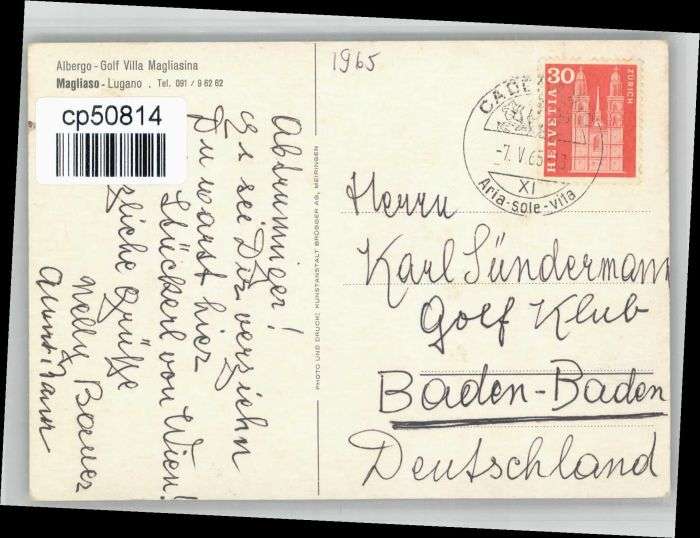 Albergo - Golf Villa Magliasina
Magliaso - Lugano . Tel. 091 / 9 62 62
cp50814
Abtrünniger!
Es sei Dir verziehn
Du warst hier
Stückerl von Wien!
zliche Grüße
Nelly Bauer
PHOTO UND DRUCK: KUNSTANSTALT BRÜGGER AG, MEIRINGEN
1965
-7. V 65
XI
Aria-sole-vita
30
HELVETIA
ZÜRICH
Herrn
Karl Sündermann
Golf Klub
Baden-Baden
Deutschland